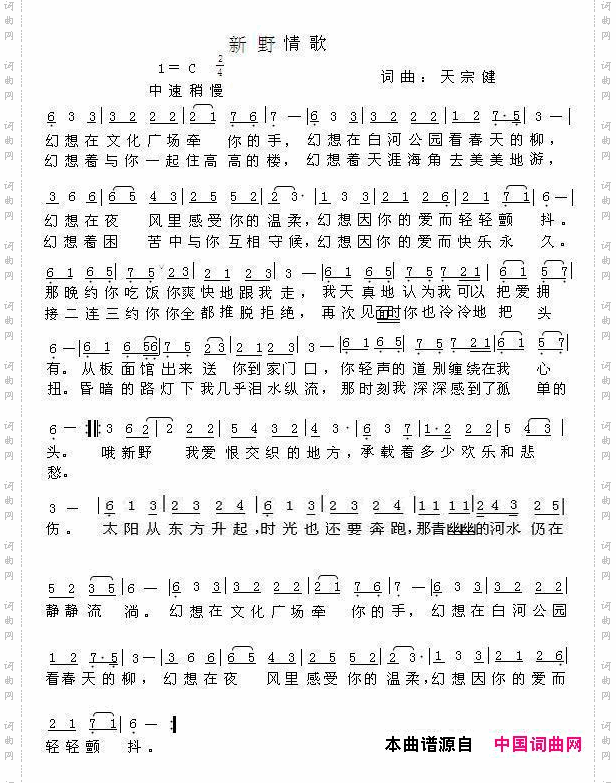 新野情歌
1= C 2/4
词曲：天宗健
中速稍慢
6 3 3 | 3 2 2 2 | 2 1 7 6 | 7 — | 6 3 3 | 3 2 2 2 | 1 2 7·5 | 3 — |
幻想在文化广场牵 你的手，幻想在白河公园看春天的柳，
幻想着与你一起住高 高的楼，幻想着天涯海角去美美地游，
3 6 6 | 6 5 4 3 | 2 5 5 2 | 2 3· | 1 3 3 | 2 1 2 6 | 2 1 7 1 | 6 — |
幻想在夜 风里感受你的温柔，幻想因你的爱而轻轻颤 抖。
幻想着困 苦中与你互相守候，幻想因你的爱而快乐永 久。
6 1 6 5 | 7 5 2 3 | 2 1 2 3 | 3 — | 6 1 6 5 | 7 5 7 2 1 | 6 1 5 7 |
那晚约你吃饭你爽快地跟我走，我天真地认为我可以把爱拥
接二连三约你你全都推脱拒绝，再次见面时你也冷冷地把 头
6 — | 6 1 6 5 6 | 7 5 2 3 | 2 1 2 2 | 3 — | 6 1 6 5 | 7 5 7 2 1 | 6 1 5 7 |
有。从板面馆出来送 你到家门口，你轻声的道别缠绕在我 心
扭。昏暗的路灯下我几乎泪水纵流，那时刻我深深感到了孤 单的
6 — :‖: 3 6 2 | 2 2 2 | 5 4 3 2 | 3 2 4 | 3· 6 | 6 3 7 | 1·2 2 2 | 2 5 4 3 |
头。 哦新野 我爱恨交织的地方，承载着多少欢乐和悲
愁。
3 — | 6 1 3 | 2 3 2 4 | 2 3 2 4 | 2 3 2 4 | 1 1 1 1 | 2 4 3 2 5 |
伤。 太阳从东方升起，时光也还要奔跑，那青幽幽的河水仍在
5 2 3 5 | 6 — | 6 3 3 | 3 2 2 2 | 2 1 7 6 | 7 — | 6 3 3 | 3 2 2 2 |
静静流 淌。幻想在文化广场牵 你的手，幻想在白河公园
1 2 7·5 | 3 — | 3 6 6 | 6 5 4 3 | 2 5 5 2 | 2 3· | 1 3 3 | 2 1 2 6 |
看春天的柳，幻想在夜 风里感受你的温柔，幻想因你的爱而
2 1 7 1 | 6 — :‖
轻轻颤 抖。
本曲谱源自 中国词曲网
词曲网
词曲网
词曲网
词曲网
词曲网
词曲网
词曲网
词曲网
词曲网
词曲网